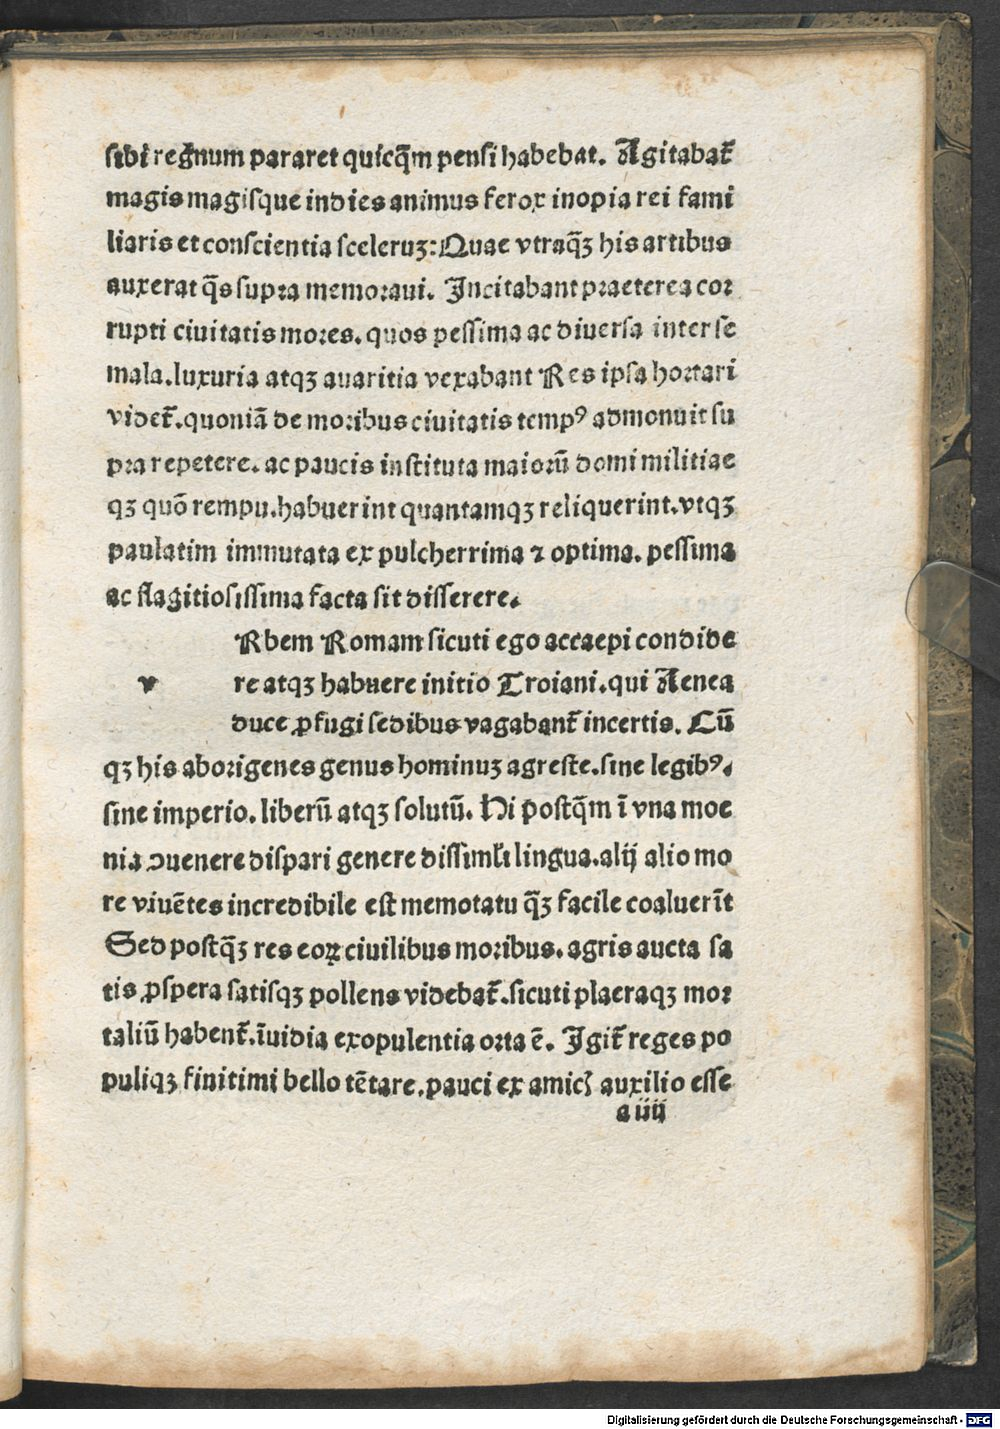 sibi regnum pararet quicq̄m pensi habebat. Agitabat᷑
magis magisque indies animus ferox inopia rei fami
liaris et conscientia sceleruꝫ: Quae vtraq̄ꝫ his artibus
auxerat q̄s supra memoraui. Incitabant praeterea cor
rupti ciuitatis mores. quos pessima ac diuersa inter se
mala. luxuria atqꝫ auaritia vexabant Res ipsa hortari
videt᷑. quoniā de moribus ciuitatis tempꝰ admonuit su
pra repetere. ac paucis instituta maiorū domi militiae
qꝫ quō rempu. habuerint quantamqꝫ reliquerint. vtqꝫ
paulatim immutata ex pulcherrima ⁊ optima. pessima
ac flagitiosissima facta sit disserere.
Rbem Romam sicuti ego accaepi condide
v re atqꝫ habuere initio Troiani. qui Aenea
duce ꝓfugi sedibus vagabant᷑ incertis. Cū
qꝫ his aborigenes genus hominuꝫ agreste. sine legibꝰ.
sine imperio. liberū atqꝫ solutū. Hi postq̄m ī vna moe
nia ↄuenere dispari genere dissimili lingua. alij alio mo
re viuētes incredibile est memotatu q̄ꝫ facile coaluerīt
Sed postq̄ꝫ res eoꝝ ciuilibus moribus. agris aucta sa
tis ꝓspera satisqꝫ pollens videbat᷑. sicuti plaeraqꝫ mor
taliū habent᷑. īuidia ex opulentia orta ē. Igit᷑ reges po
puliqꝫ finitimi bello tētare. pauci ex amicꝭ auxilio esse
a iiij
Digitalisierung gefördert durch die Deutsche Forschungsgemeinschaft - DFG